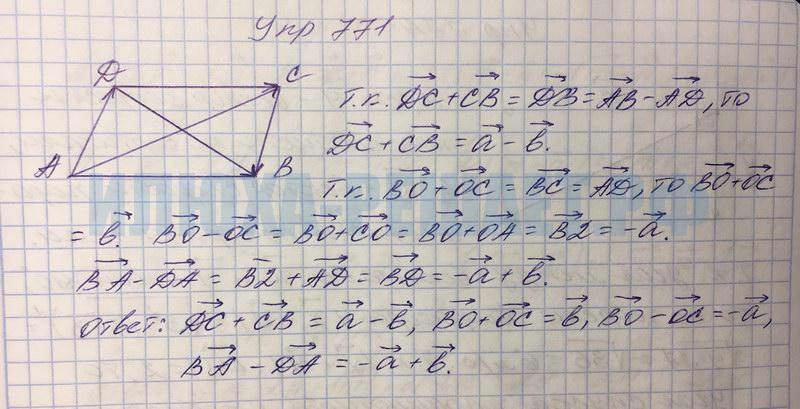 Упр 771
D C
A B
т.к. DC + CB = DB = AB - AD, то
DC + CB = a - b.
т.к. BO + OC = BC = AD, то BO + OC
= b. BO - OC = BO + CO = BO + OA = B2 = -a.
BA - DA = B2 + AD = BD = -a + b.
ответ: DC + CB = a - b, BO + OC = b, BO - OC = -a,
BA - DA = -a + b.